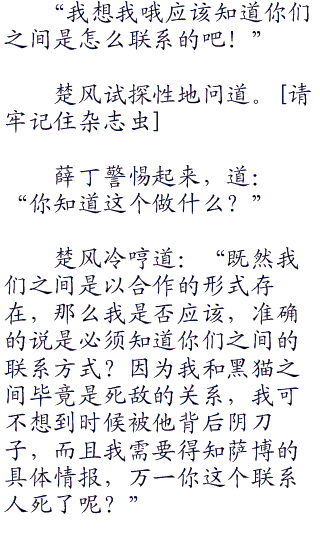 “我想我哦应该知道你们
之间是怎么联系的吧！”
楚风试探性地问道。[请
牢记住杂志虫]
薛丁警惕起来，道：
“你知道这个做什么？”
楚风冷哼道：“既然我
们之间是以合作的形式存
在，那么我是否应该，准确
的说是必须知道你们之间的
联系方式？因为我和黑猫之
间毕竟是死敌的关系，我可
不想到时候被他背后阴刀
子，而且我需要得知萨博的
具体情报，万一你这个联系
人死了呢？”